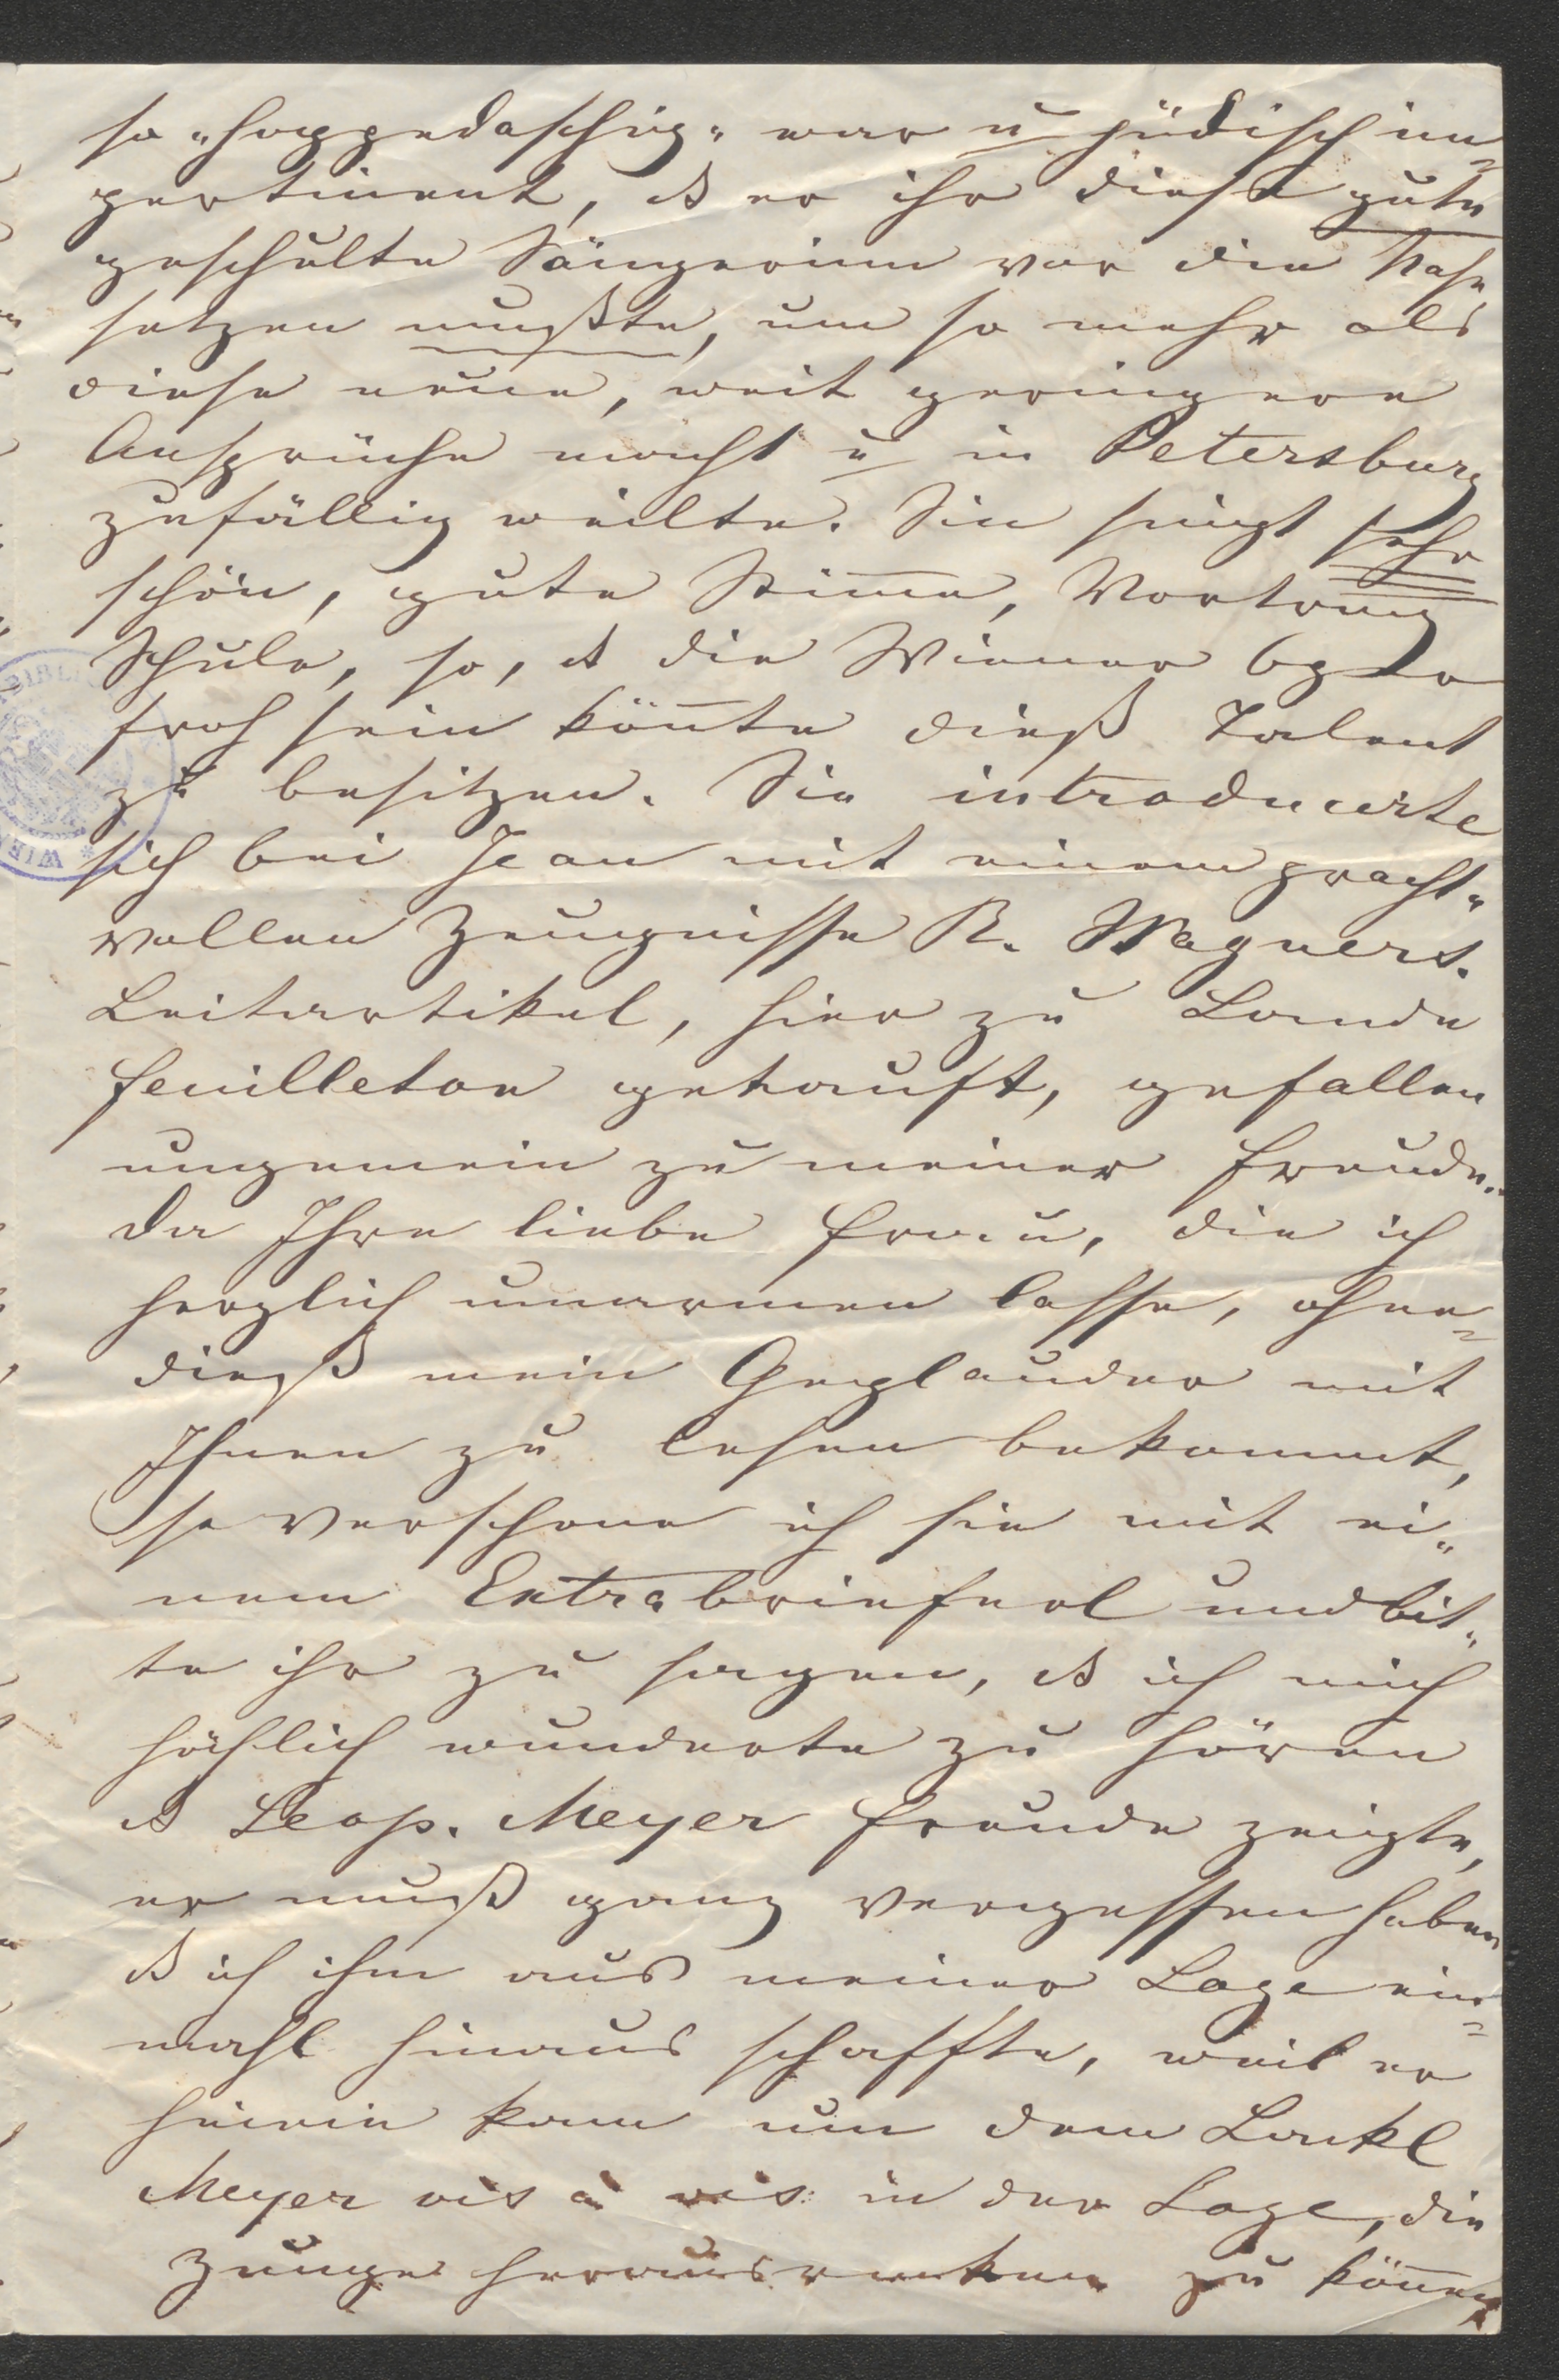 so „hoppedaschig„ war u jüdisch im=
pertinent, ds er ihr diese gute
geschulte Sängerinn vor die Nase
setzen mußte, um so mehr als
diese neue, weit geringere
Ansprüche macht u in Petersburg
zufällig weilte. Sie singt sehr
schön, gute Stim̅e, Vortrag
Schule, so, ds die Wiener Oper
froh sein kön̅te dieß Talent
zu besitzen. Sie introducirte
sich bei Jean mit einem pracht„
vollen Zeugnisse R. Wagners.
Leitartikel, hier zu Lande
Feuilleton getauft, gefallen
ungemein zu meiner Freude.
Da Ihre liebe Frau, die ich
herzlich umarmen lasse, ohne=
dieß mein Geplauder mit
Ihnen zu lesen bekommt,
so verschone ich sie mit ei„
nem Extrabrieferl und bit„
te ihr zu sagen, ds ich mich
höchlich wunderte zu hören
ds Leop. Meyer Freude zeigte,
er muß ganz vergessen haben
ds ich ihn aus meiner Loge ein=
mahl hinaus schaffte, weil er
hinein kam um dem Lackl
Meyer vis à vis in der Loge, die
Zunge herausrecken zu kön̅en
WIEN